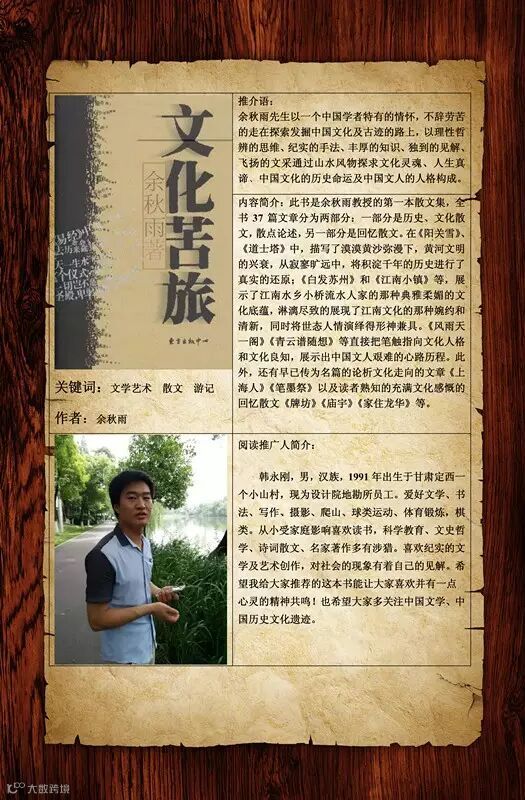 文化苦旅
余秋雨著
东方出版中心
关键词：文学艺术 散文 游记
作者：余秋雨
推介语：
余秋雨先生以一个中国学者特有的情怀，不辞劳苦
的走在探索发掘中国文化及古迹的路上，以理性哲
辨的思维、纪实的手法、丰厚的知识、独到的见解、
飞扬的文采通过山水风物探求文化灵魂、人生真
谛、中国文化的历史命运及中国文人的人格构成。
内容简介：此书是余秋雨教授的第一本散文集，全
书 37 篇文章分为两部分：一部分是历史、文化散
文，散点论述，另一部分是回忆散文。在《阳关雪》、
《道士塔》中，描写了漠漠黄沙弥漫下，黄河文明
的兴衰，从寂寥旷远中，将积淀千年的历史进行了
真实的还原；《白发苏州》和《江南小镇》等，展
示了江南水乡小桥流水人家的那种典雅柔媚的文
化底蕴，淋漓尽致的展现了江南文化的那种婉约和
清新，同时将世态人情演绎得形神兼具。《风雨天
一阁》《青云谱随想》等直接把笔触指向文化人格
和文化良知，展示出中国文人艰难的心路历程。此
外，还有早已传为名篇的论析文化走向的文章《上
海人》《笔墨祭》以及读者熟知的充满文化感慨的
回忆散文《牌坊》《庙宇》《家住龙华》等。
阅读推广人简介：
韩永刚，男，汉族，1991 年出生于甘肃定西一
个小山村，现为设计院地勘所员工。爱好文学、书
法、写作、摄影、爬山、球类运动、体育锻炼，棋
类。从小受家庭影响喜欢读书，科学教育、文史哲
学、诗词散文、名家著作多有涉猎。喜欢纪实的文
学及艺术创作，对社会的现象有着自己的见解。希
望我给大家推荐的这本书能让大家喜欢并有一点
心灵的精神共鸣！也希望大家多关注中国文学、中
国历史文化遗迹。
大数跨境